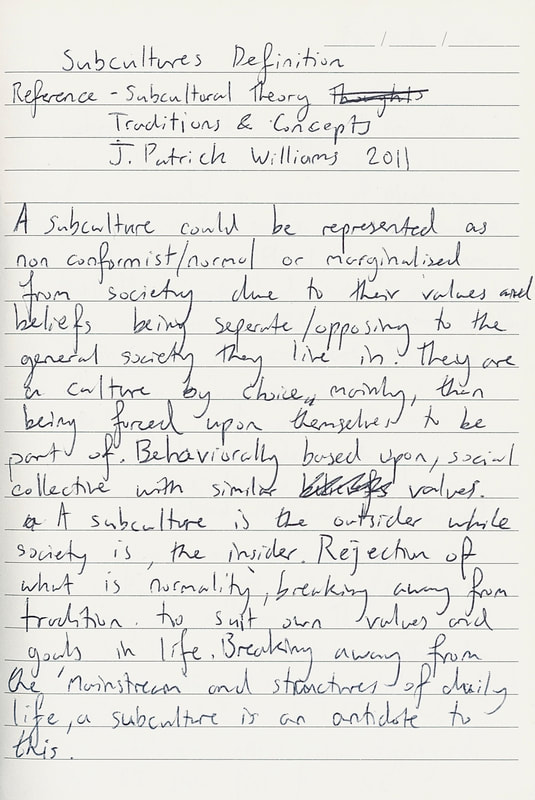 Subcultures Definition
Reference - Subcultural Theory Thoughts
Traditions & Concepts
J. Patrick Williams 2011
A subculture could be represented as
non conformist/normal or marginalised
from society due to their values and
beliefs being seperate/opposing to the
general society they live in. They are
a culture by choice, mainly, than
being forced upon themselves to be
part of. Behaviorally based upon, social
collective with similar beliefs values.
A subculture is the outsider while
society is, the insider. Rejection of
what is normality, breaking away from
tradition. to suit own values and
goals in life. Breaking away from
the 'mainstream and structures of daily
life, a subculture is an antidote to
this.